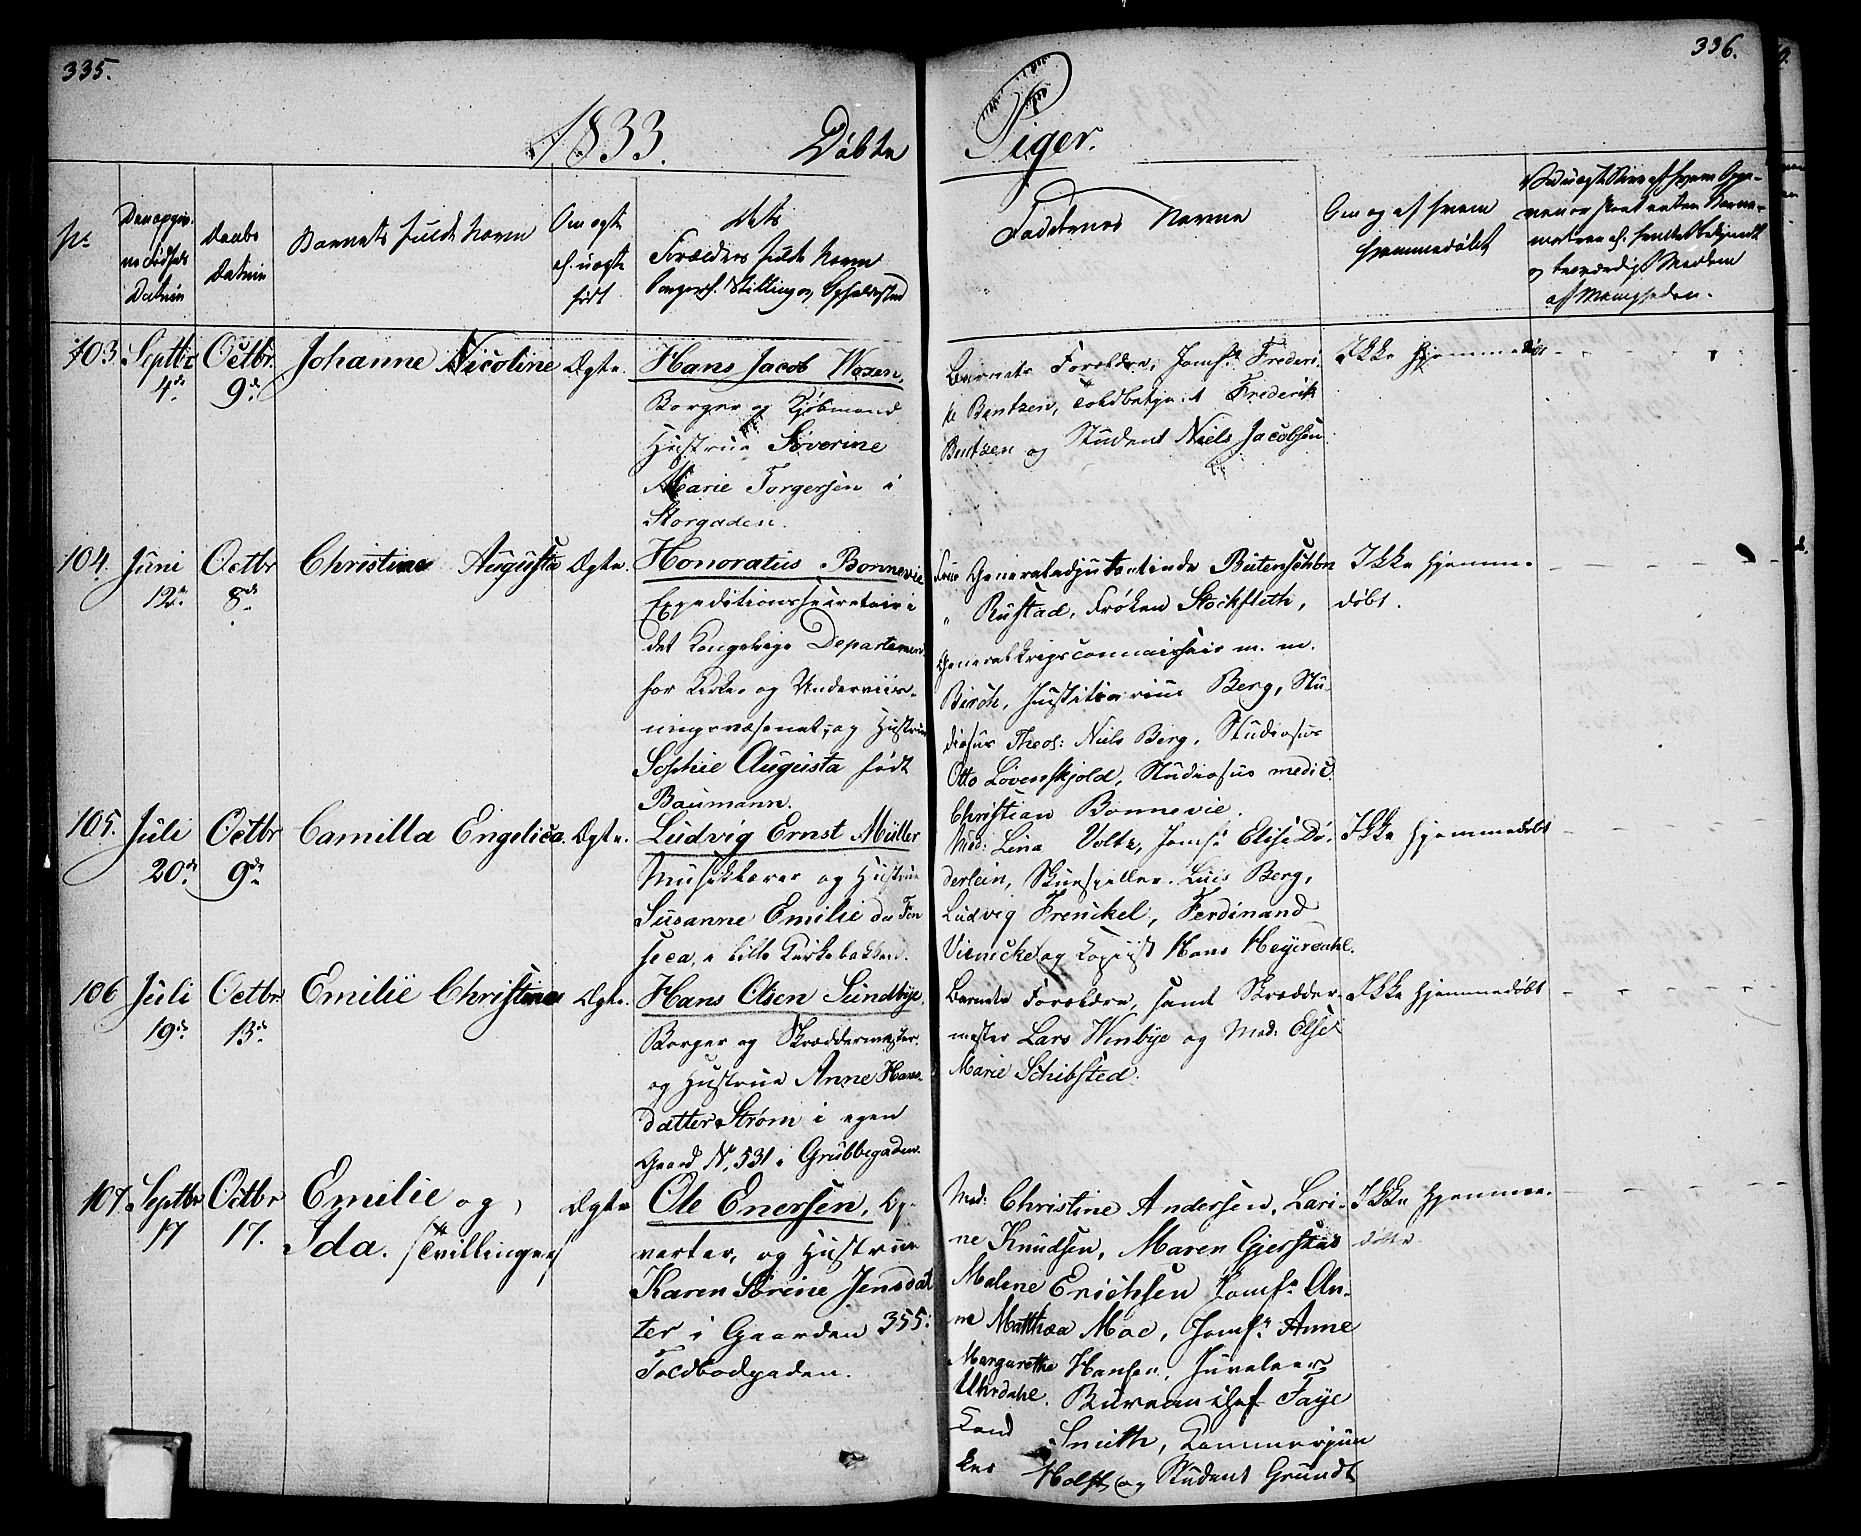 335.
336.
1833. Døbte Piger.
No
Den opgiv-
ne Fødsels
Datum
Daabs
Datum
Barnets fulde Navn
Om ægte
el. uægte
født
dets
Forældres fulde Navn
Borgerl. Stilling og Opholdssted
Faddernes Navne
Om og af hvem
hjemmedøbt
103. Septbr Octbr. Johanne Nicoline Ægte. Hans Jacob
4de 9de
Borger og Kjøbmand
Hustrue Severine
Marie Torgersen i
Storgaden.
Barnets Forældre, Jomfr. Frederi-
ke Bentzen, Toldbetjent Frederik
Bentzen og Student Niels Jacobsen
Ikke hjemmedøbt
104. Juni Octbr Christine Augusta Ægte. Honoratus Bonnevie
12te 8de
Expeditionssecretair i
det Kongelige Departement
for Kirke og Underviis-
ningsvæsenet, og Hustrue
Sophie Augusta født
Baumann.
Frue Generaladjutantinde Butenschøn
" Rustad, Frøken Stockfleth,
Generalkrigscommissair m. m.
Birch, Justitiarius Berg, Stu-
diosus Theol: Niels Berg, Studiosus
Otto Løvenskjold, Studiosus medic
Christian Bonnevie.
Ikke hjemme-
døbt.
105. Juli Octbr Camilla Engelica. Ægte. Ludvig Ernst Müller
20de 9de
Musiklærer og Hustrue
Susanne Emilie da Fon
seca, i lille Kirkebakken.
Mad: Lina Voltz, Jomfr Elise Dö-
derlein, Skuespiller Luis Berg,
Ludvig Frenckel, Ferdinand
Vienicke og Kopiist Hans Heyerdahl.
Ikke hjemmedøbt
106 Juli Octbr. Emilie Christine Ægte. Hans Olsen Sundbye,
19de 13de
Borger og Skræddermester
og Hustrue Anne Hans-
datter Strøm i egen
Gaard No 531 i Grubbegaden.
Barnets Forældre, samt Skrædder-
mester Lars Winbye og Mad: Else
Marie Schibsted.
Ikke hjemmedøbt
107. Septbr Octbr Emilie og Ægte Ole Enersen, Op-
17 17. Ida. /Tvillinger/
varter, og Hustrue
Karen Sørine Jensdat
ter i Gaarden 355:
Toldbodgaden.
Mad: Christine Andersen, Lari-
ne Knudsen, Maren Gjerstad
Malene Erichsen Jomfr. An-
ne Matthæa Moe, Jomfr. Anne
Margarethe Hansen, Juveleer
Uhrdahl. Bureauchef Faye
Smith, Kammerjun
ker Holst, og Student Grundt
Ikke hjemme-
døbte